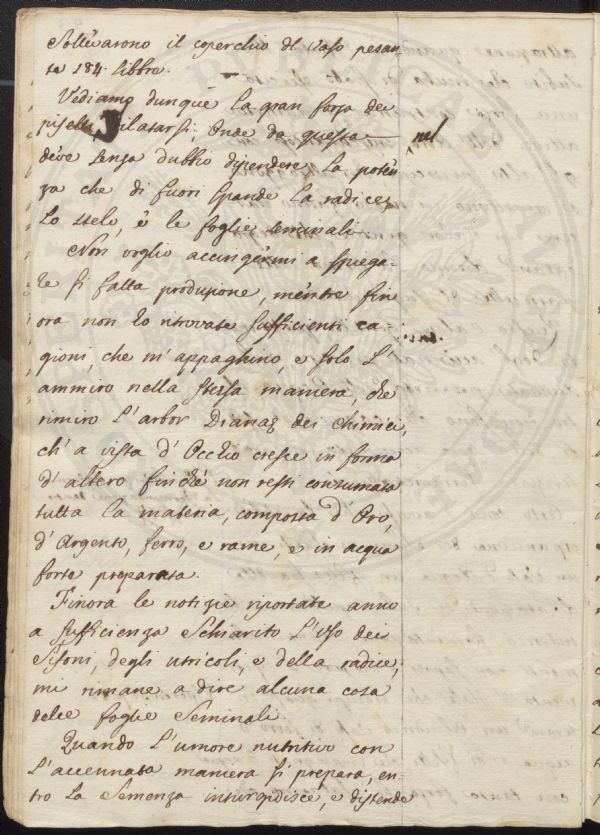 Sollevarono il coperchio del vaso pesan
te 184. libbre.
Vediamo dunque la gran forza dei
piselli dilatarsi; Onde da questa nel
deve senza dubbio dipendere la poten
za che di fuori spande la radice,
Lo stelo, è le foglie seminali.
Non voglio accingermi a spiega-
re si fatta produzione, mentre fin
ora non ho ritrovate sufficienti ca
gioni, che m'appaghino, e solo l'
ammiro nella stessa maniera, che
rimiro l'arbor Dianae dei chimici,
ch'a vista d'Occhio cresce in forma
d'altero finchè non resti consumata
tutta la materia, composta d'Oro,
d'Argento, ferro, e rame, e in acqua
forte preparata.
Finora le notizie riportate anno
a sufficienza Schiarito l'Uso dei
Sifoni, degli utricoli, e della radice;
mi rimane a dire alcuna cosa
delle foglie Seminali.
Quando l'umore nutritivo con
l'accennata maniera si prepara, en-
tro la Semenza inturgidisce, e distende